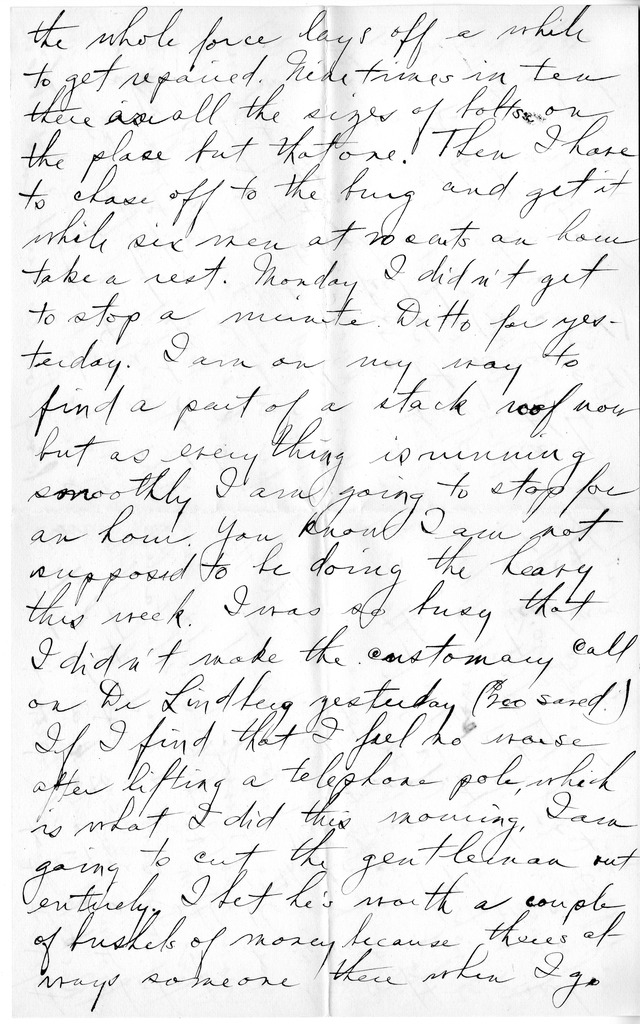 the whole force lays off a while
to get repaired. Nine times in ten
there are all the sizes of bolts on
the place but that one. Then I have
to chase off to the burg and get it
while six men at 20 cents an hour
take a rest. Monday I didn't get
to stop a minute. Ditto for yes-
terday. I am on my way to
find a part of a stack roof now
but as everything is running
smoothly I am going to stop for
an hour. You know I am not
supposed to be doing the heavy
this week. I was so busy that
I didn't make the customary call
on Dr Lindberg yesterday ( saved.)
If I find that I feel no worse
after lifting a telephone pole, which
is what I did this morning, I am
going to cut the gentleman out
entirely. I bet he's worth a couple
of bushels of money because theres al
ways someone there when I go